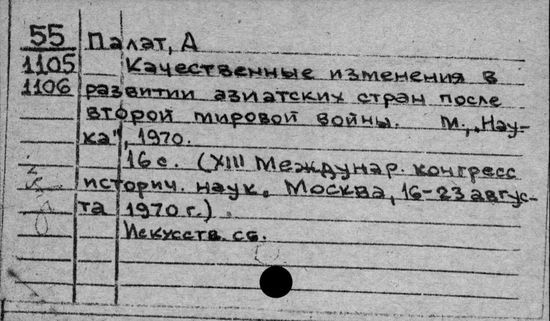 55 Палат, А
1105 Качественные изменения в
1106 развитии азиатских стран после
второй мировой войны. М., „Нау-
ка", 1970.
16 с. (XIII Междунар. конгресс
историч. наук, Москва, 16-23 авгус-
та 1970 г.).
Искусств. сб.